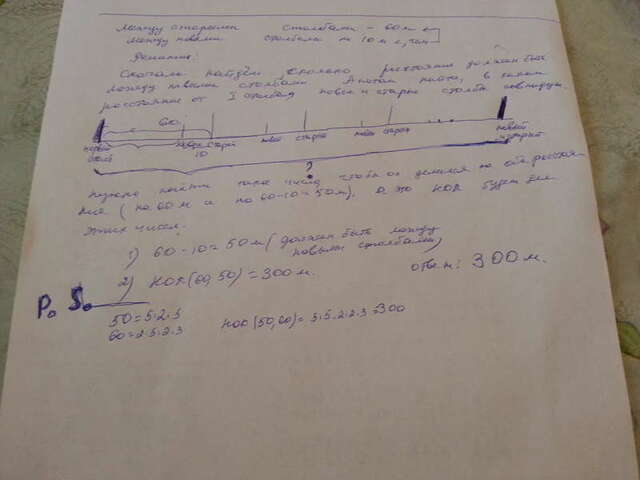 Между старыми столбами - 60 м
между новыми столбами на 10 м <, чем
Решение:
Сначала найдём, сколько расстояния должно быть
между новыми столбами. А потом найти, в каком
расстоянии от I столба новый и старый столбы совпадут.
60
первый новый старый новый старый новый старый новый
столб 10 и старый
?
Нужно найти такое число чтобы он делился на оба расстоя-
ния (на 60 м и на 60-10=50м), а это НОК будет для
этих чисел.
1) 60-10=50м (должен быть между
новыми столбами)
2) НОК(60,50)=300м.
Ответ: 300 м.
P. S.
50=5·2·5
60=2·5·2·3
НОК(50,60)=5·5·2·2·3=300